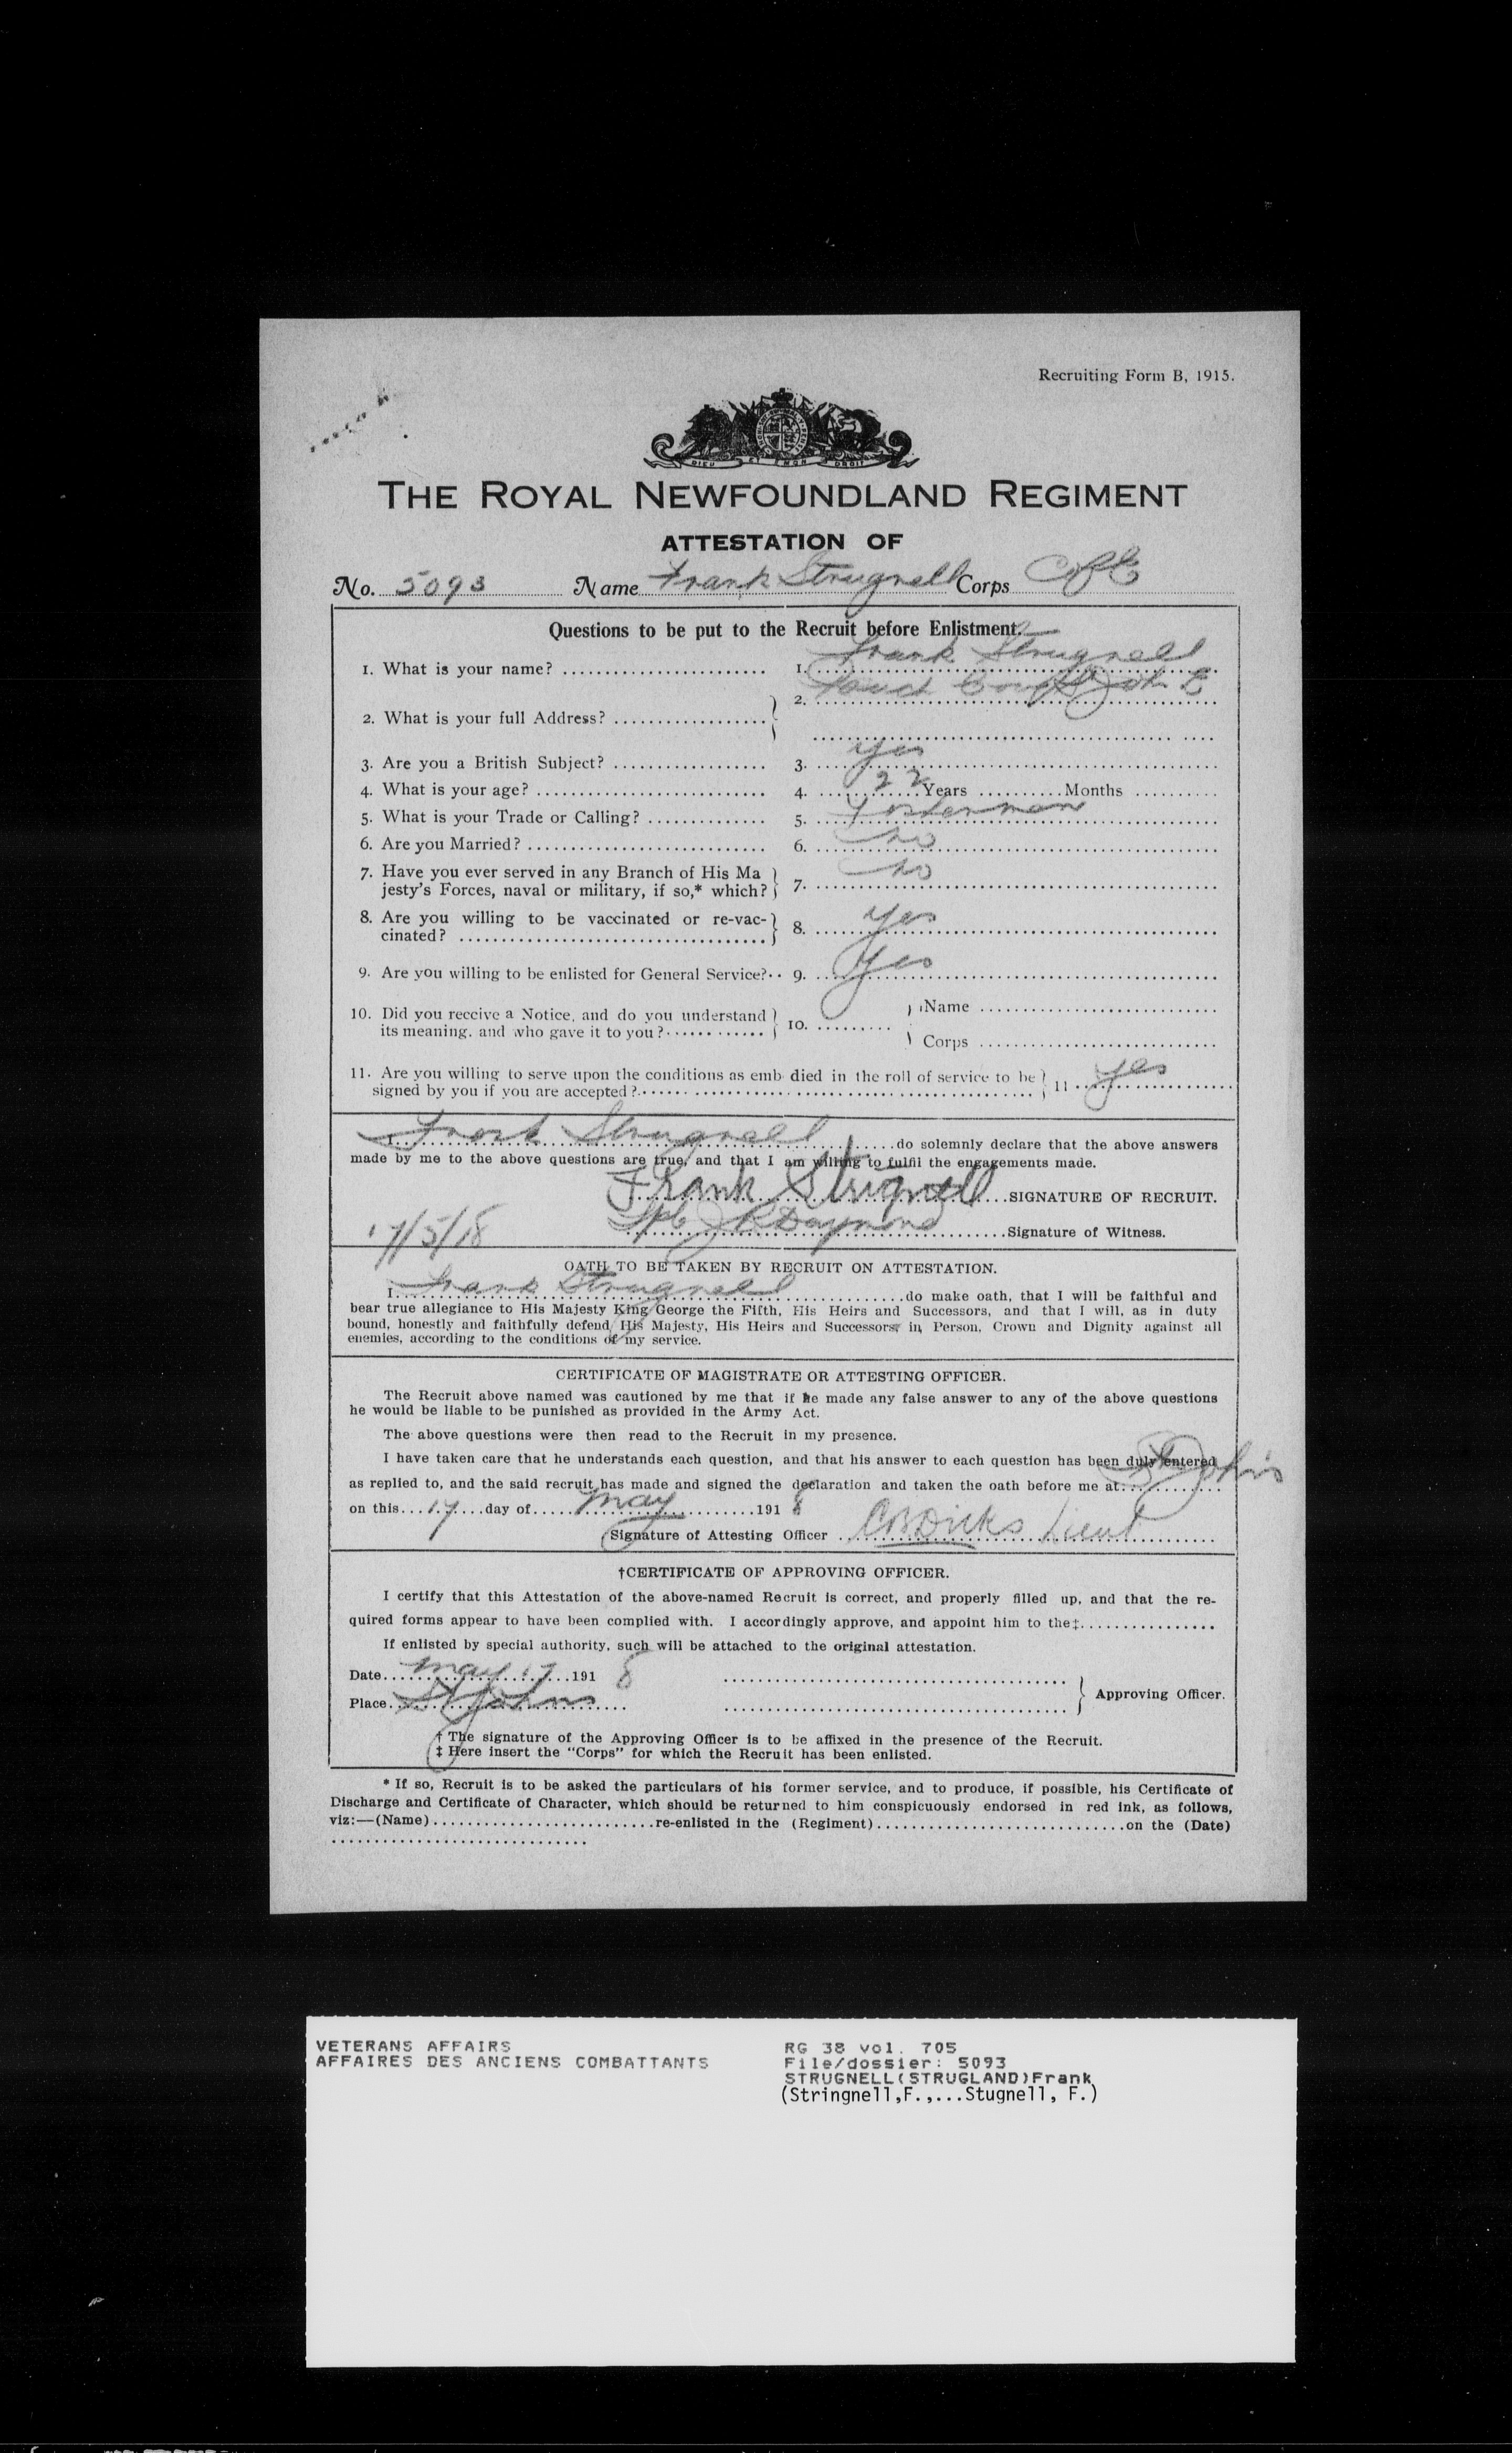 Recruiting Form B, 1915.
DIEU ET MON DROIT
THE ROYAL NEWFOUNDLAND REGIMENT
ATTESTATION OF
No. 5093 Name Frank Strugnell Corps
Questions to be put to the Recruit before Enlistment.
1. What is your name? 1. Frank Strugnell
2. What is your full Address? 2. St John
3. Are you a British Subject? 3. Yes
4. What is your age? 4. 22 Years Months
5. What is your Trade or Calling? 5.
6. Are you Married? 6. No
7. Have you ever served in any Branch of His Ma
jesty's Forces, naval or military, if so,* which? 7. No
8. Are you willing to be vaccinated or re-vac-
cinated? 8. Yes
9. Are you willing to be enlisted for General Service? 9. Yes
10. Did you receive a Notice, and do you understand
its meaning, and who gave it to you? 10. Name
Corps
11. Are you willing to serve upon the conditions as emb died in the roll of service to be
signed by you if you are accepted? 11 Yes
I Frank Strugnell do solemnly declare that the above answers
made by me to the above questions are true, and that I am willing to fulfil the engagements made.
Frank Strugnell SIGNATURE OF RECRUIT.
17/5/18 Signature of Witness.
OATH TO BE TAKEN BY RECRUIT ON ATTESTATION.
I Frank Strugnell do make oath, that I will be faithful and
bear true allegiance to His Majesty King George the Fifth, His Heirs and Successors, and that I will, as in duty
bound, honestly and faithfully defend His Majesty, His Heirs and Successors, in Person, Crown and Dignity against all
enemies, according to the conditions of my service.
CERTIFICATE OF MAGISTRATE OR ATTESTING OFFICER.
The Recruit above named was cautioned by me that if he made any false answer to any of the above questions
he would be liable to be punished as provided in the Army Act.
The above questions were then read to the Recruit in my presence.
I have taken care that he understands each question, and that his answer to each question has been duly entered
as replied to, and the said recruit has made and signed the declaration and taken the oath before me at St Johns
on this 17 day of May 1918
Signature of Attesting Officer CB Dicks Lieut
†CERTIFICATE OF APPROVING OFFICER.
I certify that this Attestation of the above-named Recruit is correct, and properly filled up, and that the re-
quired forms appear to have been complied with. I accordingly approve, and appoint him to the‡
If enlisted by special authority, such will be attached to the original attestation.
Date May 17 1918
Place St Johns Approving Officer.
† The signature of the Approving Officer is to be affixed in the presence of the Recruit.
‡ Here insert the "Corps" for which the Recruit has been enlisted.
* If so, Recruit is to be asked the particulars of his former service, and to produce, if possible, his Certificate of
Discharge and Certificate of Character, which should be returned to him conspicuously endorsed in red ink, as follows,
viz:—(Name) re-enlisted in the (Regiment) on the (Date)
VETERANS AFFAIRS
AFFAIRES DES ANCIENS COMBATTANTS
RG 38 vol. 705
File/dossier: 5093
STRUGNELL(STRUGLAND)Frank
(Stringnell,F.,...Stugnell, F.)